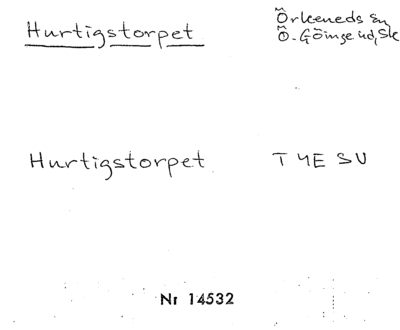 Hurtigstorpet
Örkeneds Sn
Ö. Göinge hd, Sk
Hurtigstorpet
TYESU
Nr 14532